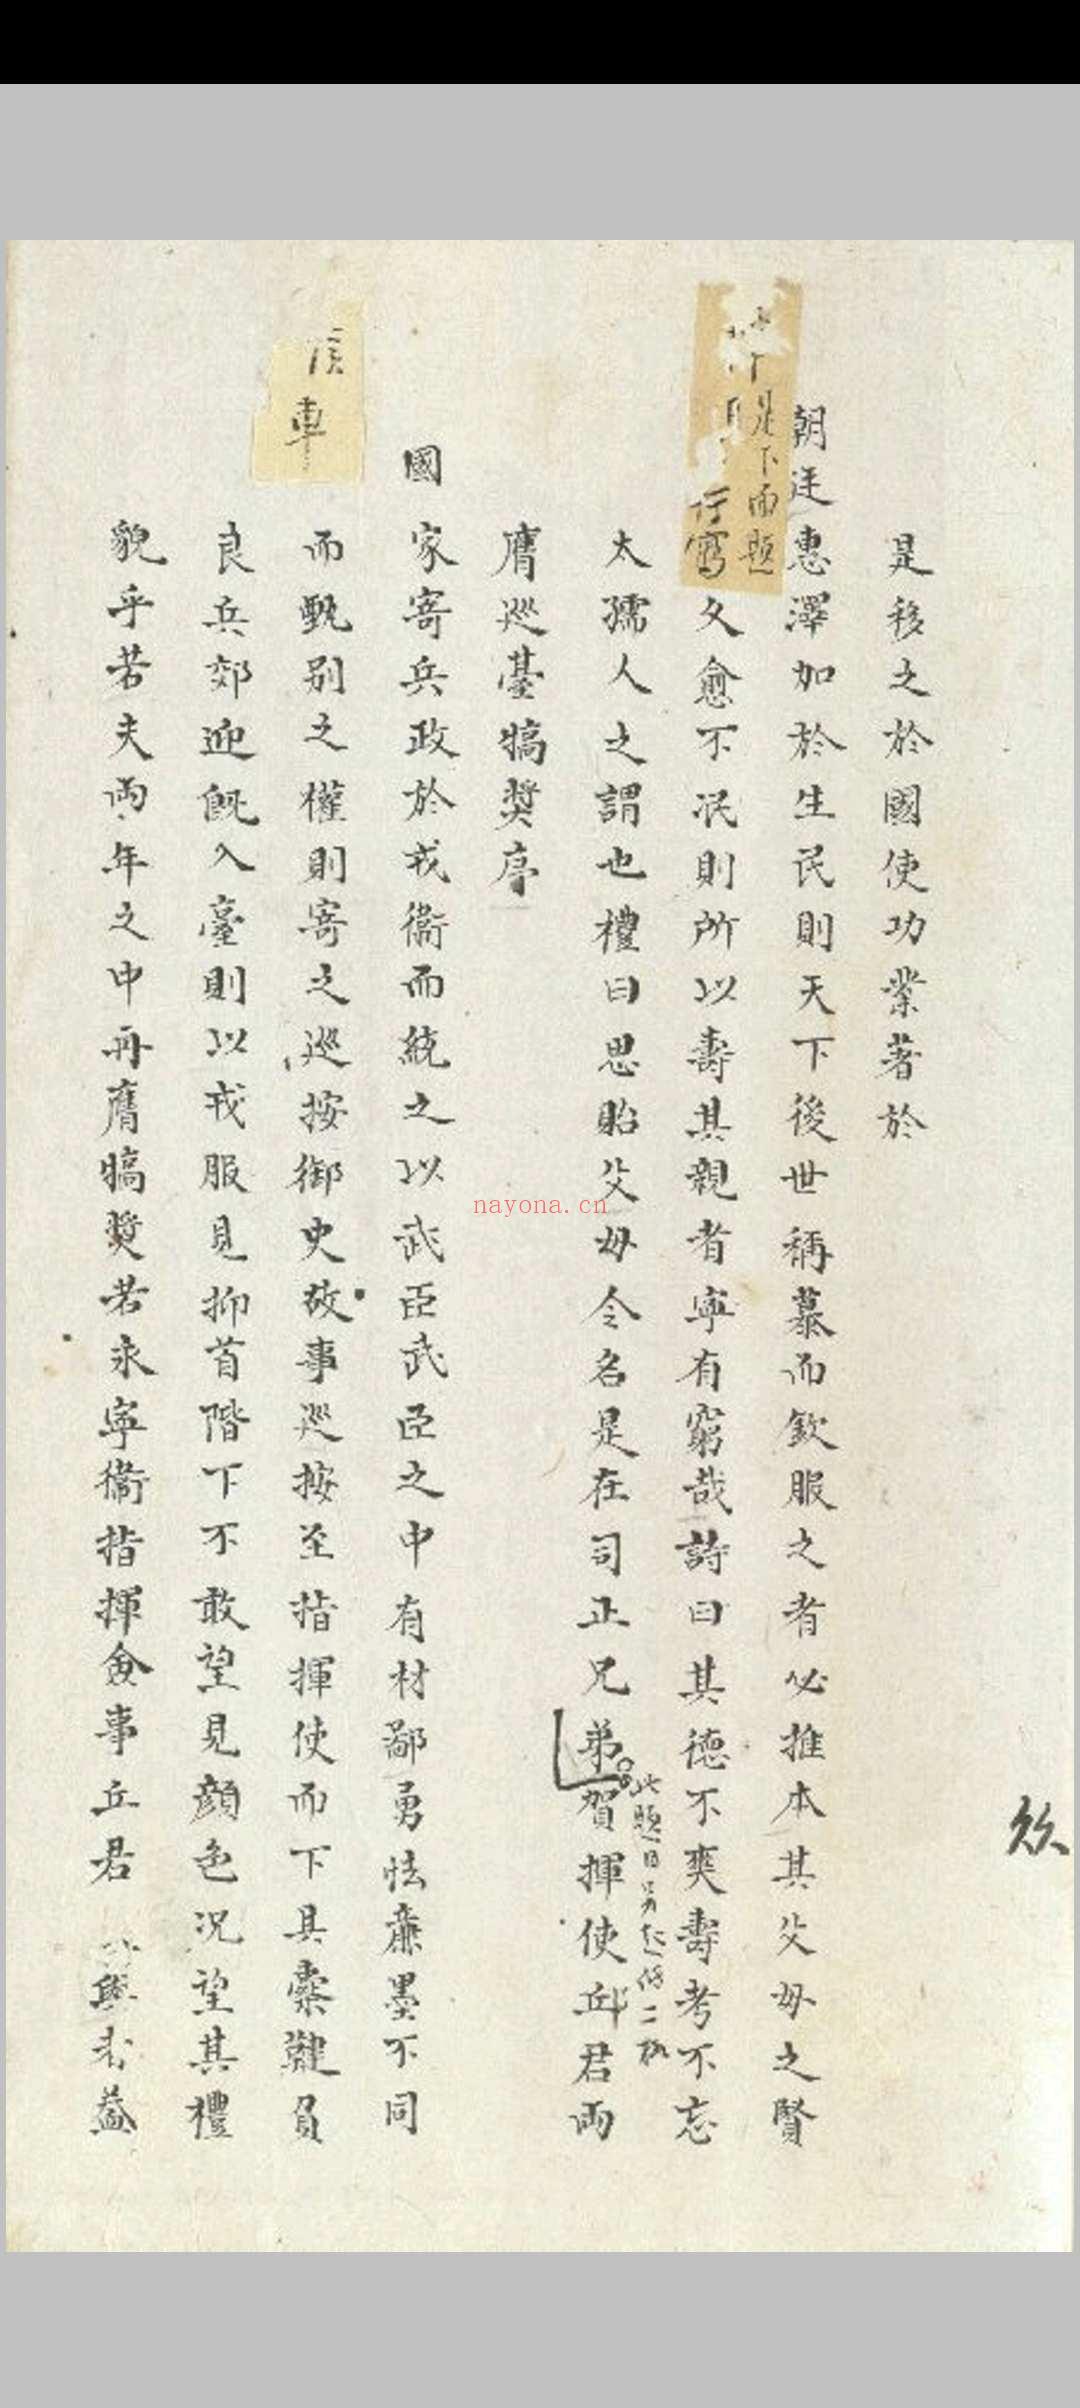 是移之於國使功業著於
朝廷惠澤加於生民則天下後世稱慕而欽服之者必推本其父母之賢
是下面題
行寫
久愈不泯則所以壽其親者寧有窮哉詩曰其德不爽壽考不忘
太孺人之謂也禮曰思貽父母令名是在司正兄弟賀揮使丘君兩
此題目另起
膺巡臺犒奬序
國家寄兵政於戎衛而統之以武臣武臣之中有材鄙勇怯廉墨不同
而甄别之權則寄之巡按御史故事巡按至指揮使而下具櫜鞬負
良兵郊迎既入臺則以戎服見抑首階下不敢望見顔色况望其禮
車
貌乎若夫兩年之中再膺犒奬若永寧衛指揮僉事丘君
益
nayona.cn